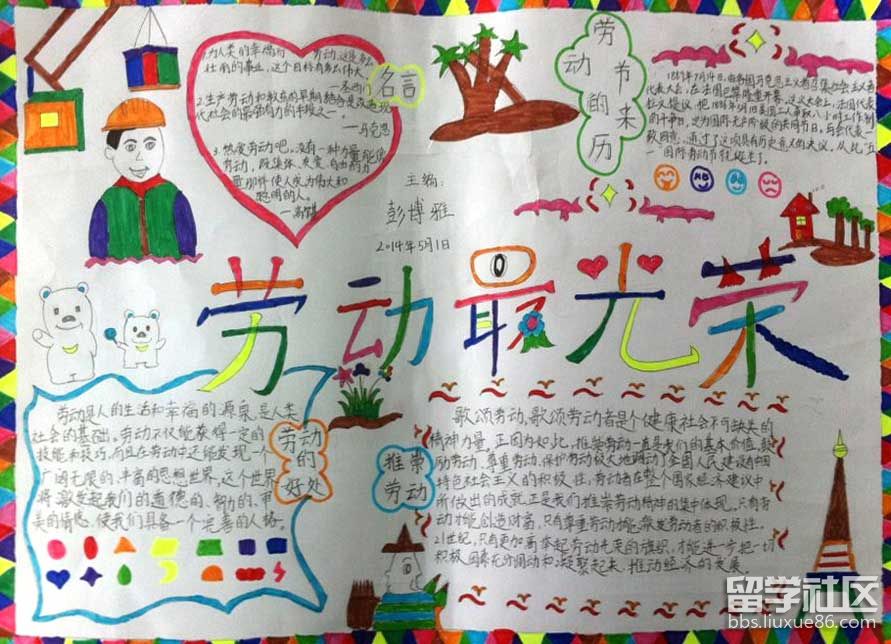 1.为人类的幸福而劳动,这是多么
壮丽的事业,这个目标有多么伟大。
2.生产劳动和教育的早期结合是改造现
代社会的最强有力的手段之一。
—马克思
3.热爱劳动吧。没有一种力量
能使人成为伟大和
聪明的人。
—高尔基
名言
主编:
彭博雅
2014年5月1日
劳动节的来历
1889年7月14日,由各国马克思主义者召集的社会主义者
代表大会,在法国巴黎隆重开幕。这次大会上,法国代表
拉文提议,把1886年5月1日美国工人争取八小时工作制
的斗争日,定为国际无产阶级的共同节日。与会代表一
致同意,通过了这项具有历史意义的决议。从此,“五
一”国际劳动节诞生了。
劳动最光荣
劳动是人的生活和幸福的源泉,是人类
社会的基础。劳动不仅能获得一定的
技能和技巧,而且在劳动中还能发现一个
广阔无限的、丰富的思想世界,这个世界
将激发起我们的道德的、智力的、审
美的情感,使我们具备一个完善的人格。
劳动的好处
推崇劳动
歌颂劳动、歌颂劳动者是个健康社会不可缺失的
精神力量。正因为如此,推崇劳动一直是我们的基本价值,鼓
励劳动、尊重劳动、保护劳动极大地调动了全国人民建设中国
特色社会主义的积极性,劳动者在整个国家经济建设中
所做出的成就,正是我们推崇劳动精神的集中体现。只有劳
动才能创造财富,只有尊重劳动才能激发劳动者的积极性。
21世纪,只有更加高举起劳动光荣的旗帜,才能进一步把一切
积极因素充分调动和凝聚起来,推动经济的发展。
留学社区
bbs.liuxue86.com